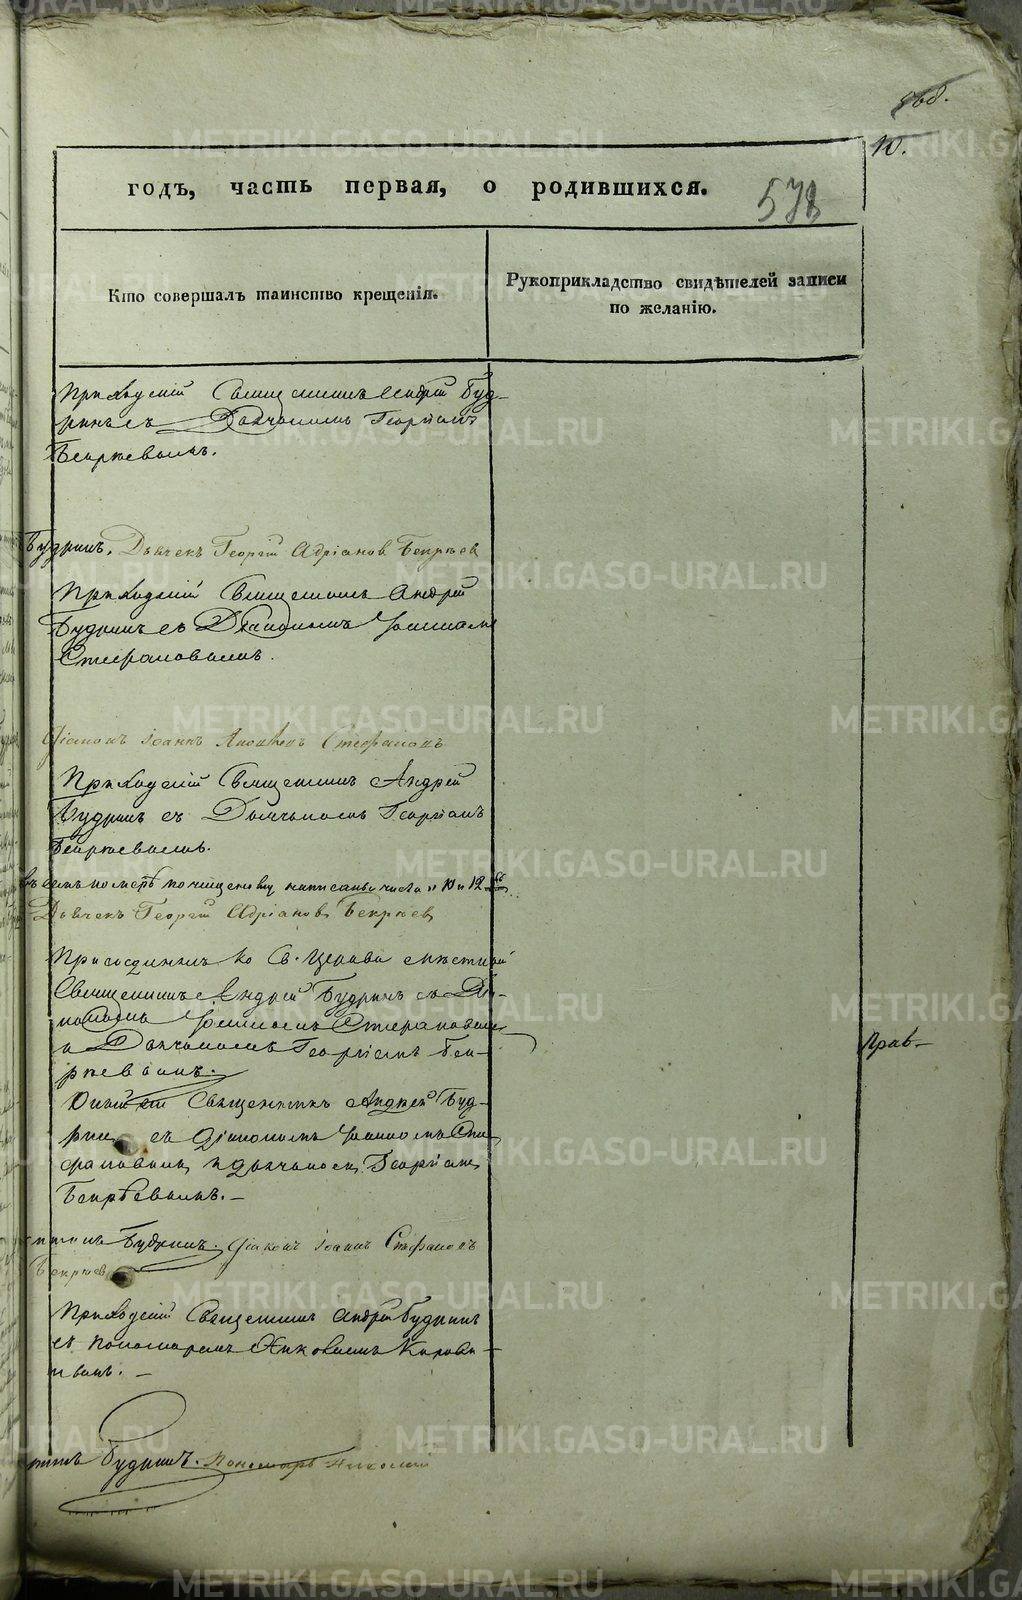 10.
годъ, часть первая, о родившихся.
578
Кто совершалъ таинство крещенія.
Рукоприкладство свидѣтелей записи
по желанію.
Приходскій Священникъ Андрей Буд-
ринъ съ Дьячкомъ Георгіемъ
Бекряевымъ.
Будринъ. Дьячекъ Георгій Адріановъ Бекряев
Приходскій Священникъ Андрей
Будринъ съ Діакономъ Іоанномъ
Стефановымъ.
Діаконъ Іоаннъ Стефановъ
Приходскій Священникъ Андрей
Будринъ съ Дьячкомъ Георгіемъ
Бекряевымъ.
въ семъ номерѣ по чищеному написаны числа "10 и 12"
Дьячекъ Георгій Адріановъ Бекряев
Присоединилъ ко Св. Церкви мѣстный
Священникъ Андрей Будринъ съ Діа-
кономъ Іоанномъ Стефановымъ
и Дьячкомъ Георгіемъ Бек-
ряевымъ.
Священникъ Андрей Буд-
рин съ Діакономъ Іоанномъ Сте
фановымъ и дьячкомъ Георгіем
Бекряевымъ. —
Будринъ. Діаконъ Іоаннъ Стефановъ
Бекряев
Приходскій Священникъ Андрей Будринъ
съ пономаремъ
Будринъ. Пономарь Николай
METRIKI.GASO-URAL.RU